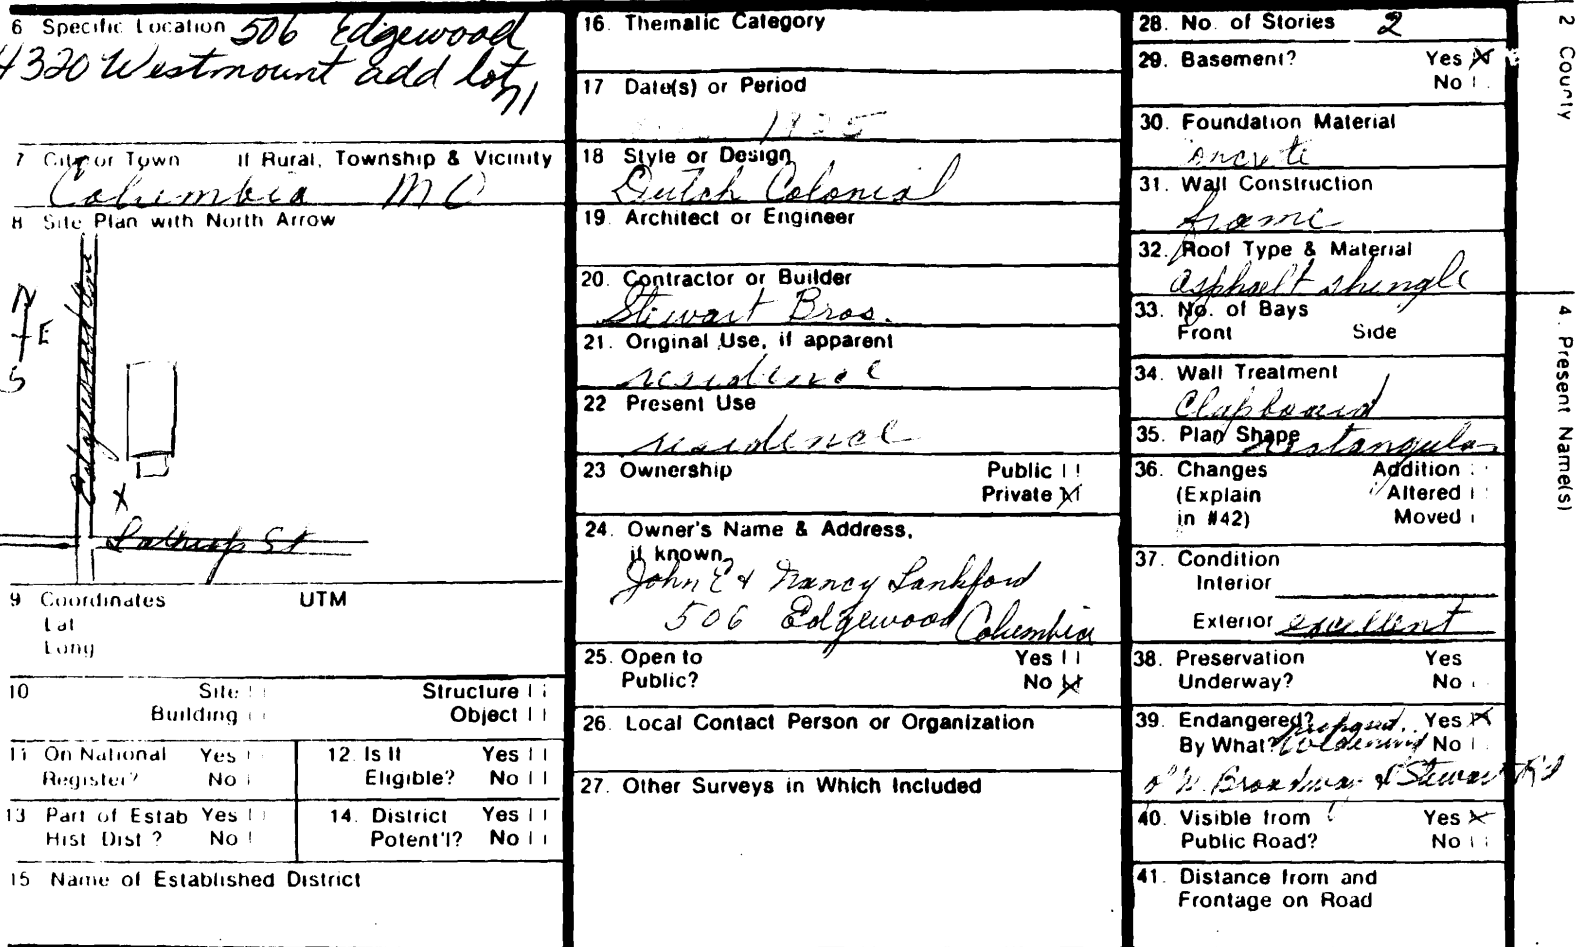 6 Specific Location 506 Edgewood
4320 Westmount add lot
71
7 City or Town If Rural, Township & Vicinity
Columbia MO
8 Site Plan with North Arrow
N
E
S
X
Lathrop St
9 Coordinates UTM
Lat
Long
10 Site
Structure
Building
Object
11 On National Register? Yes
No
12. Is It Eligible? Yes
No
13 Part of Estab Hist Dist? Yes
No
14. District Potent'l? Yes
No
15 Name of Established District
16. Thematic Category
17 Date(s) or Period
1925
18 Style or Design
Dutch Colonial
19. Architect or Engineer
20. Contractor or Builder
Stewart Bros.
21. Original Use, if apparent
residence
22 Present Use
residence
23 Ownership Public
Private X
24. Owner's Name & Address,
if known
John E & Nancy Lankford
506 Edgewood Columbia
25. Open to Yes
Public? No X
26. Local Contact Person or Organization
27. Other Surveys in Which Included
28. No. of Stories 2
29. Basement? Yes X
No
30. Foundation Material
concrete
31. Wall Construction
frame
32. Roof Type & Material
asphalt shingle
33. No. of Bays
Front Side
34. Wall Treatment
Clapboard
35. Plan Shape rectangular
36. Changes Addition
(Explain Altered
in #42) Moved
37. Condition
Interior
Exterior excellent
38. Preservation Yes
Underway? No
39. Endangered? Yes X
By What? widening No
of W. Broadway & Stewart Rd
40. Visible from Yes X
Public Road? No
41. Distance from and
Frontage on Road
2 County
4. Present Name(s)